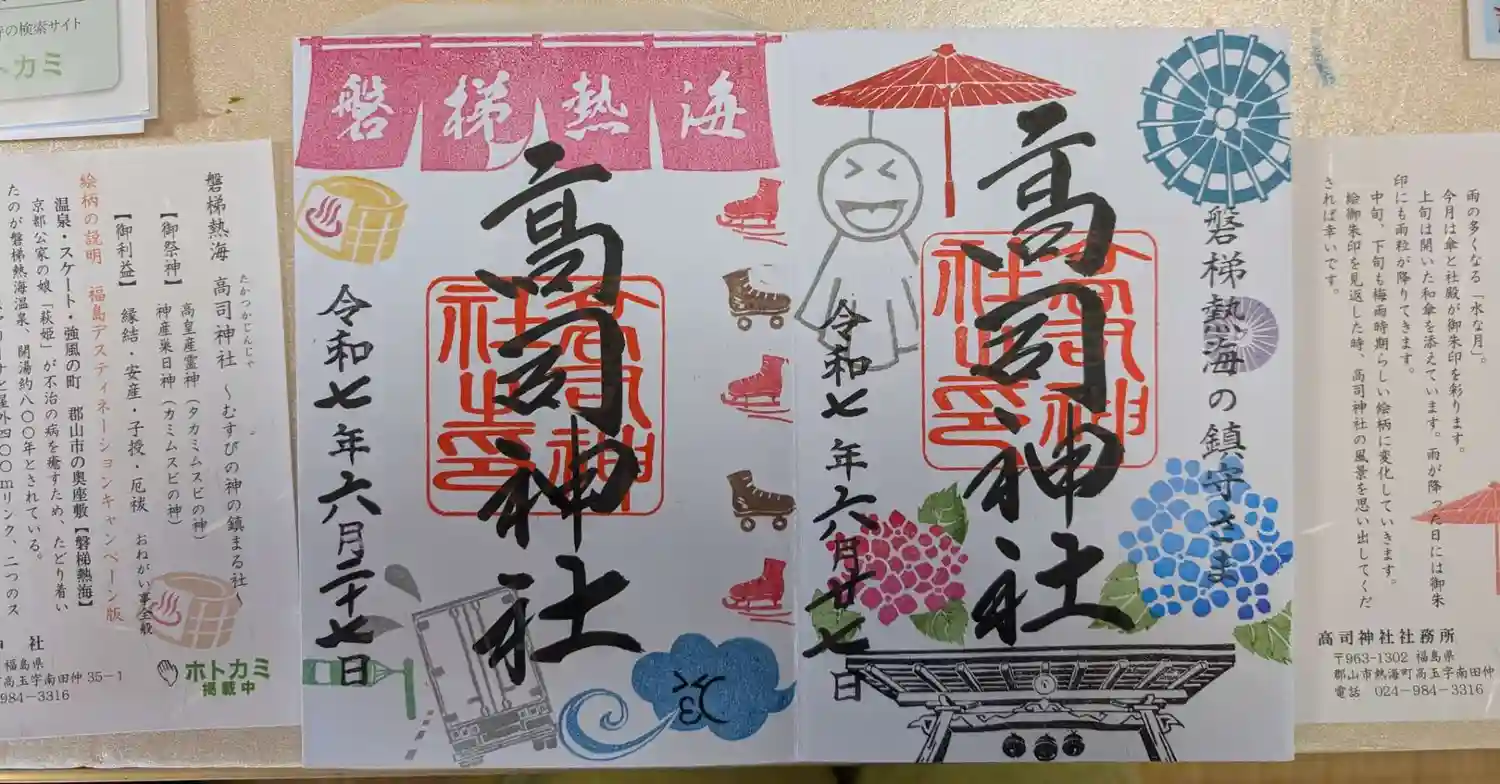 の検索サイト
トカミ
磐梯熱海 高司神社 〜むすびの神の鎮まる社〜
たかつかじんじゃ
【御祭神】 高皇産霊神(タカミムスビの神)
神産巣日神(カミムスビの神)
【御利益】 縁結・安産・子授・厄祓 おねがい事全般
絵柄の説明 福島デスティネーションキャンペーン版
温泉・スケート・強風の町 郡山市の奥座敷【磐梯熱海】
京都公家の娘「萩姫」が不治の病を癒すため、たどり着い
たのが磐梯熱海温泉、開湯約八〇〇年とされている。
屋外四〇〇mリンク、二つのス
社
福島県
高玉字南田仲 35-1
984-3316
ホトカミ
掲載中
磐梯熱海
高司神社
高司神社之印
令和七年六月二十七日
磐梯熱海の鎮守さま
高司神社
高司神社之印
令和七年六月廿七日
雨の多くなる「水な月」。
今月は傘と社殿が御朱印を彩ります。
上旬は開いた和傘を添えています。雨が降った日には御朱
印にも雨粒が降りてきます。
中旬、下旬も梅雨時期らしい絵柄に変化していきます。
絵御朱印を見返した時、高司神社の風景を思い出してくだ
されば幸いです。
高司神社社務所
〒963-1302 福島県
郡山市熱海町高玉字南田仲
電話 024-984-3316